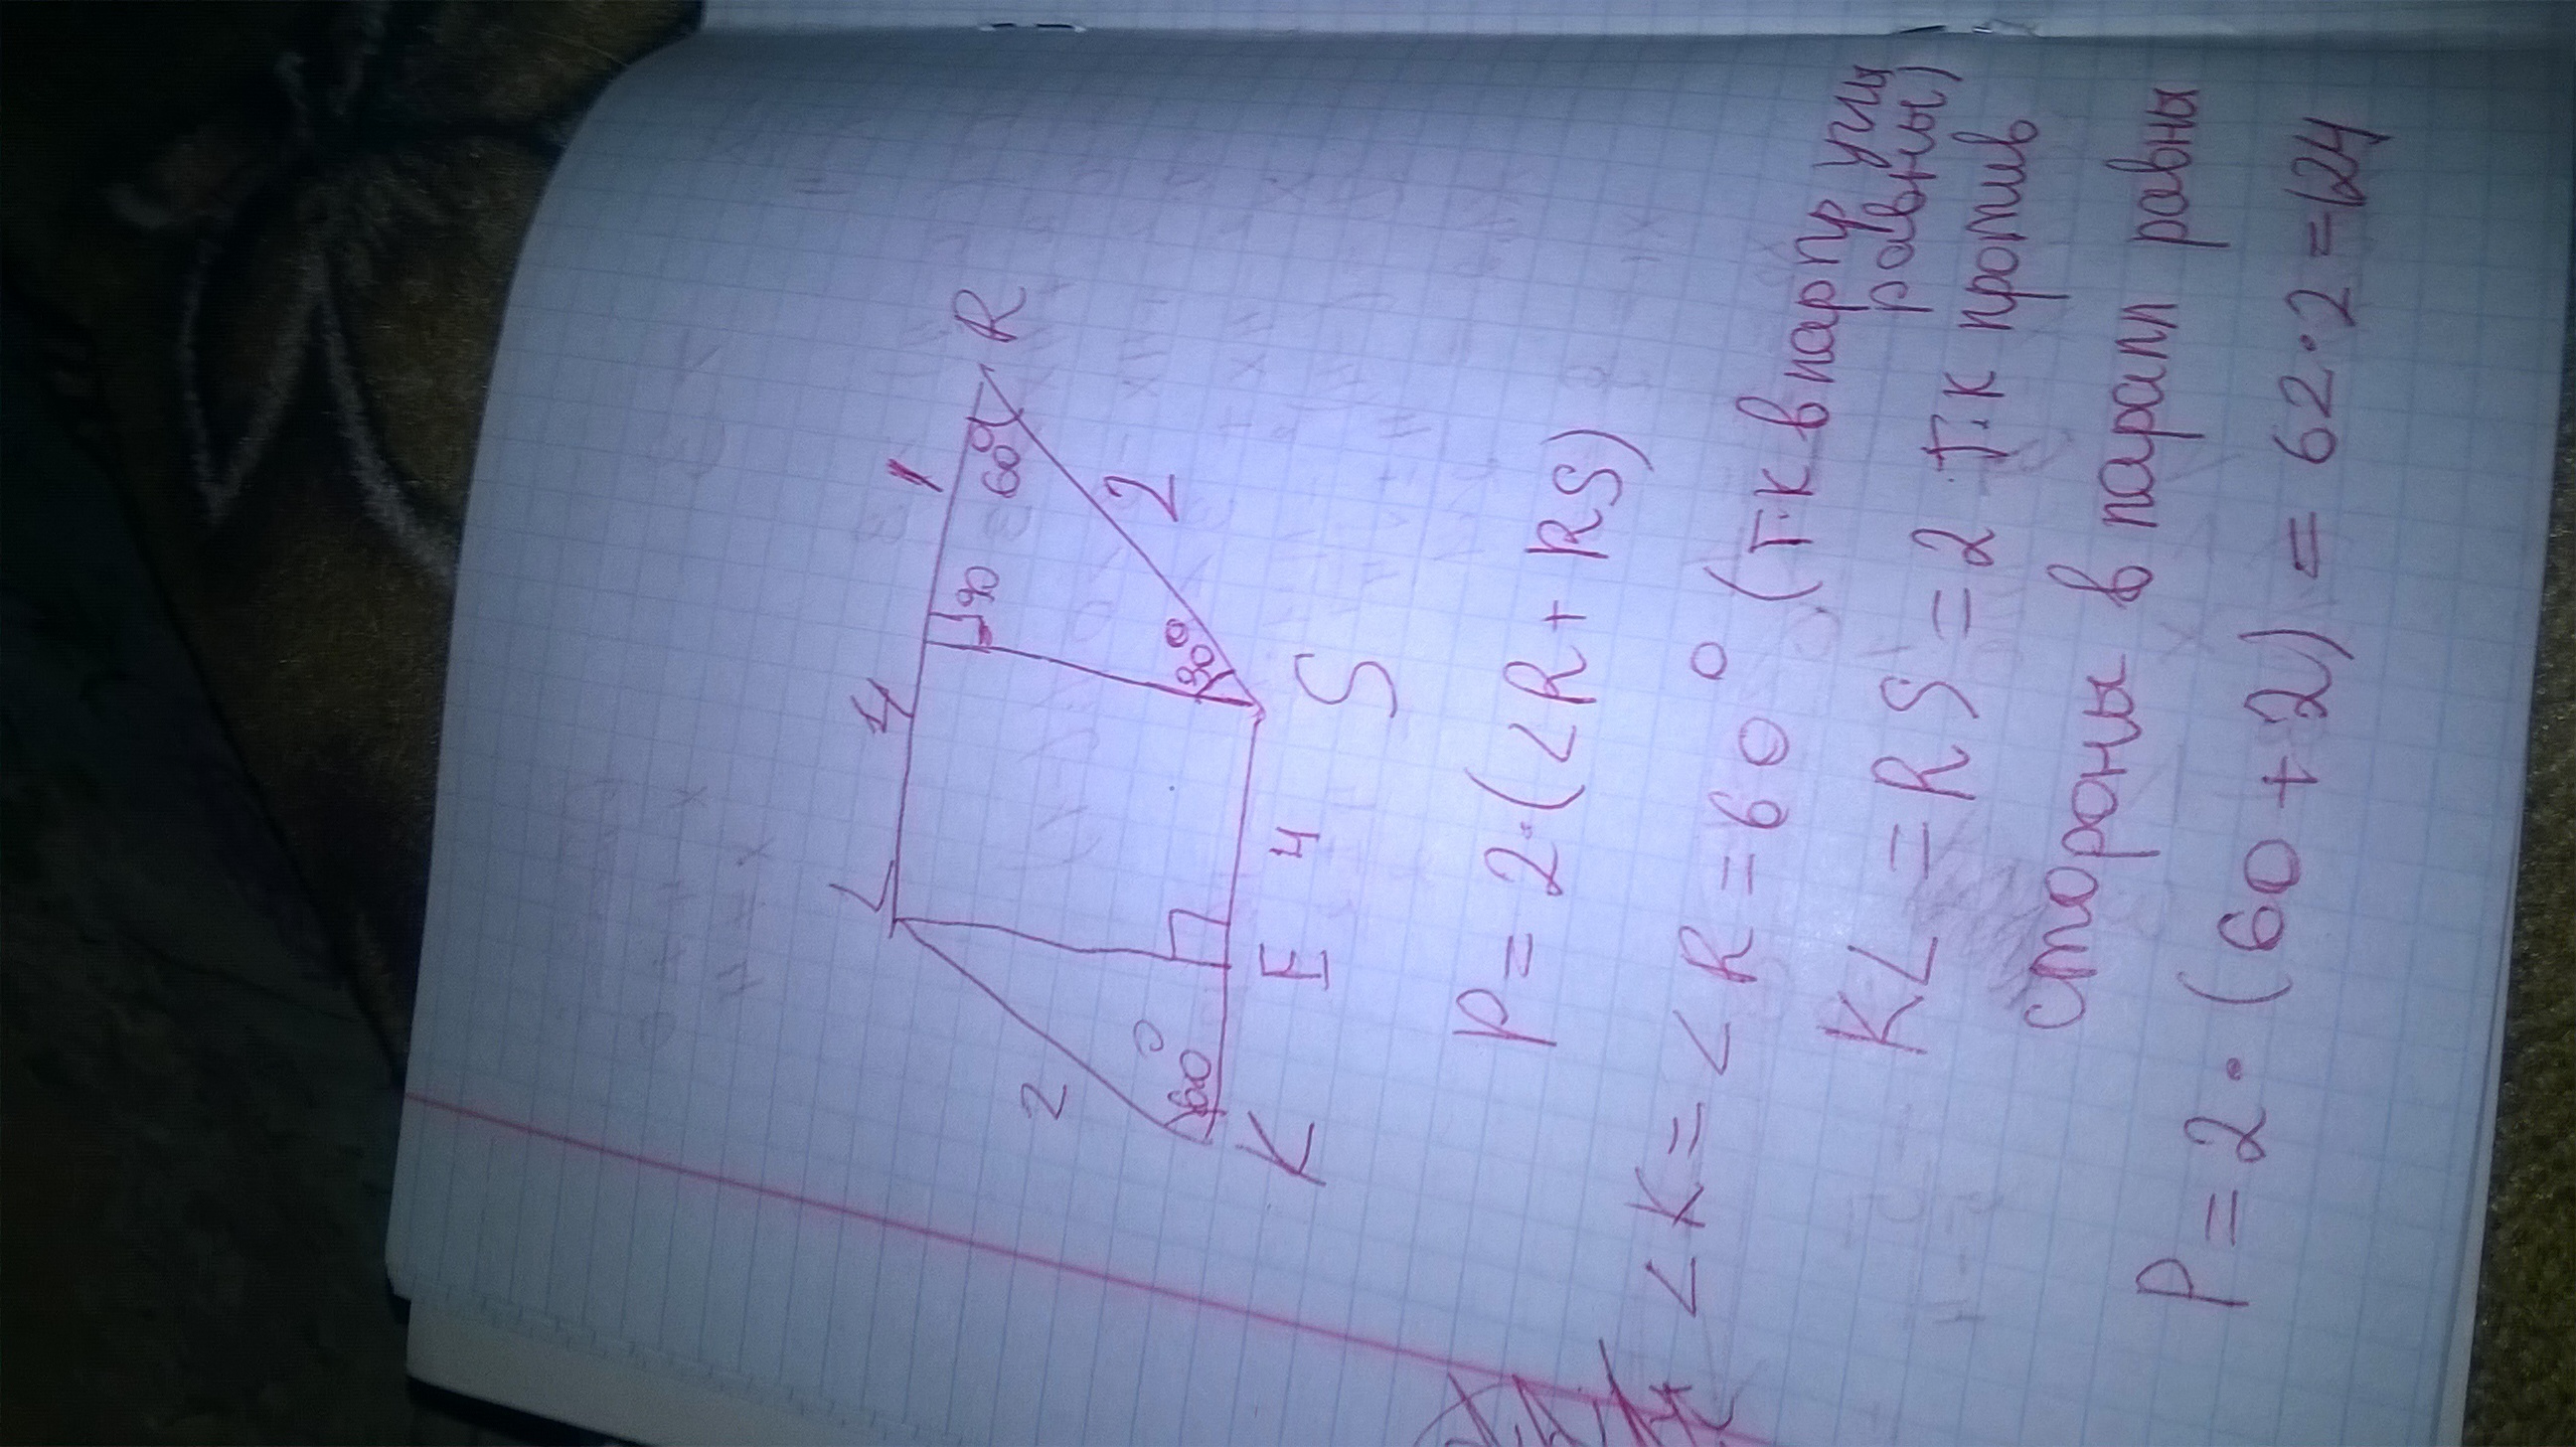 L 4 1 R
90 60°
2 30° 2
60°
K E 4 S
P = 2·(∠R + RS)
∠K = ∠R = 60° (т.к в парпр углы
равны)
KL = RS = 2 т.к против
стороны в паралл равны
P = 2·(60+2) = 62·2 = 124